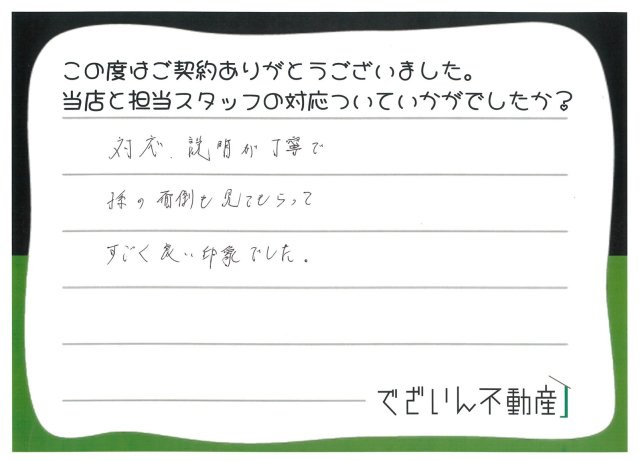 この度はご契約ありがとうございました。
当店と担当スタッフの対応ついていかがでしたか?
対応、説明が丁寧で
孫の面倒も見てもらって
すごく良い印象でした。
でざいん不動産